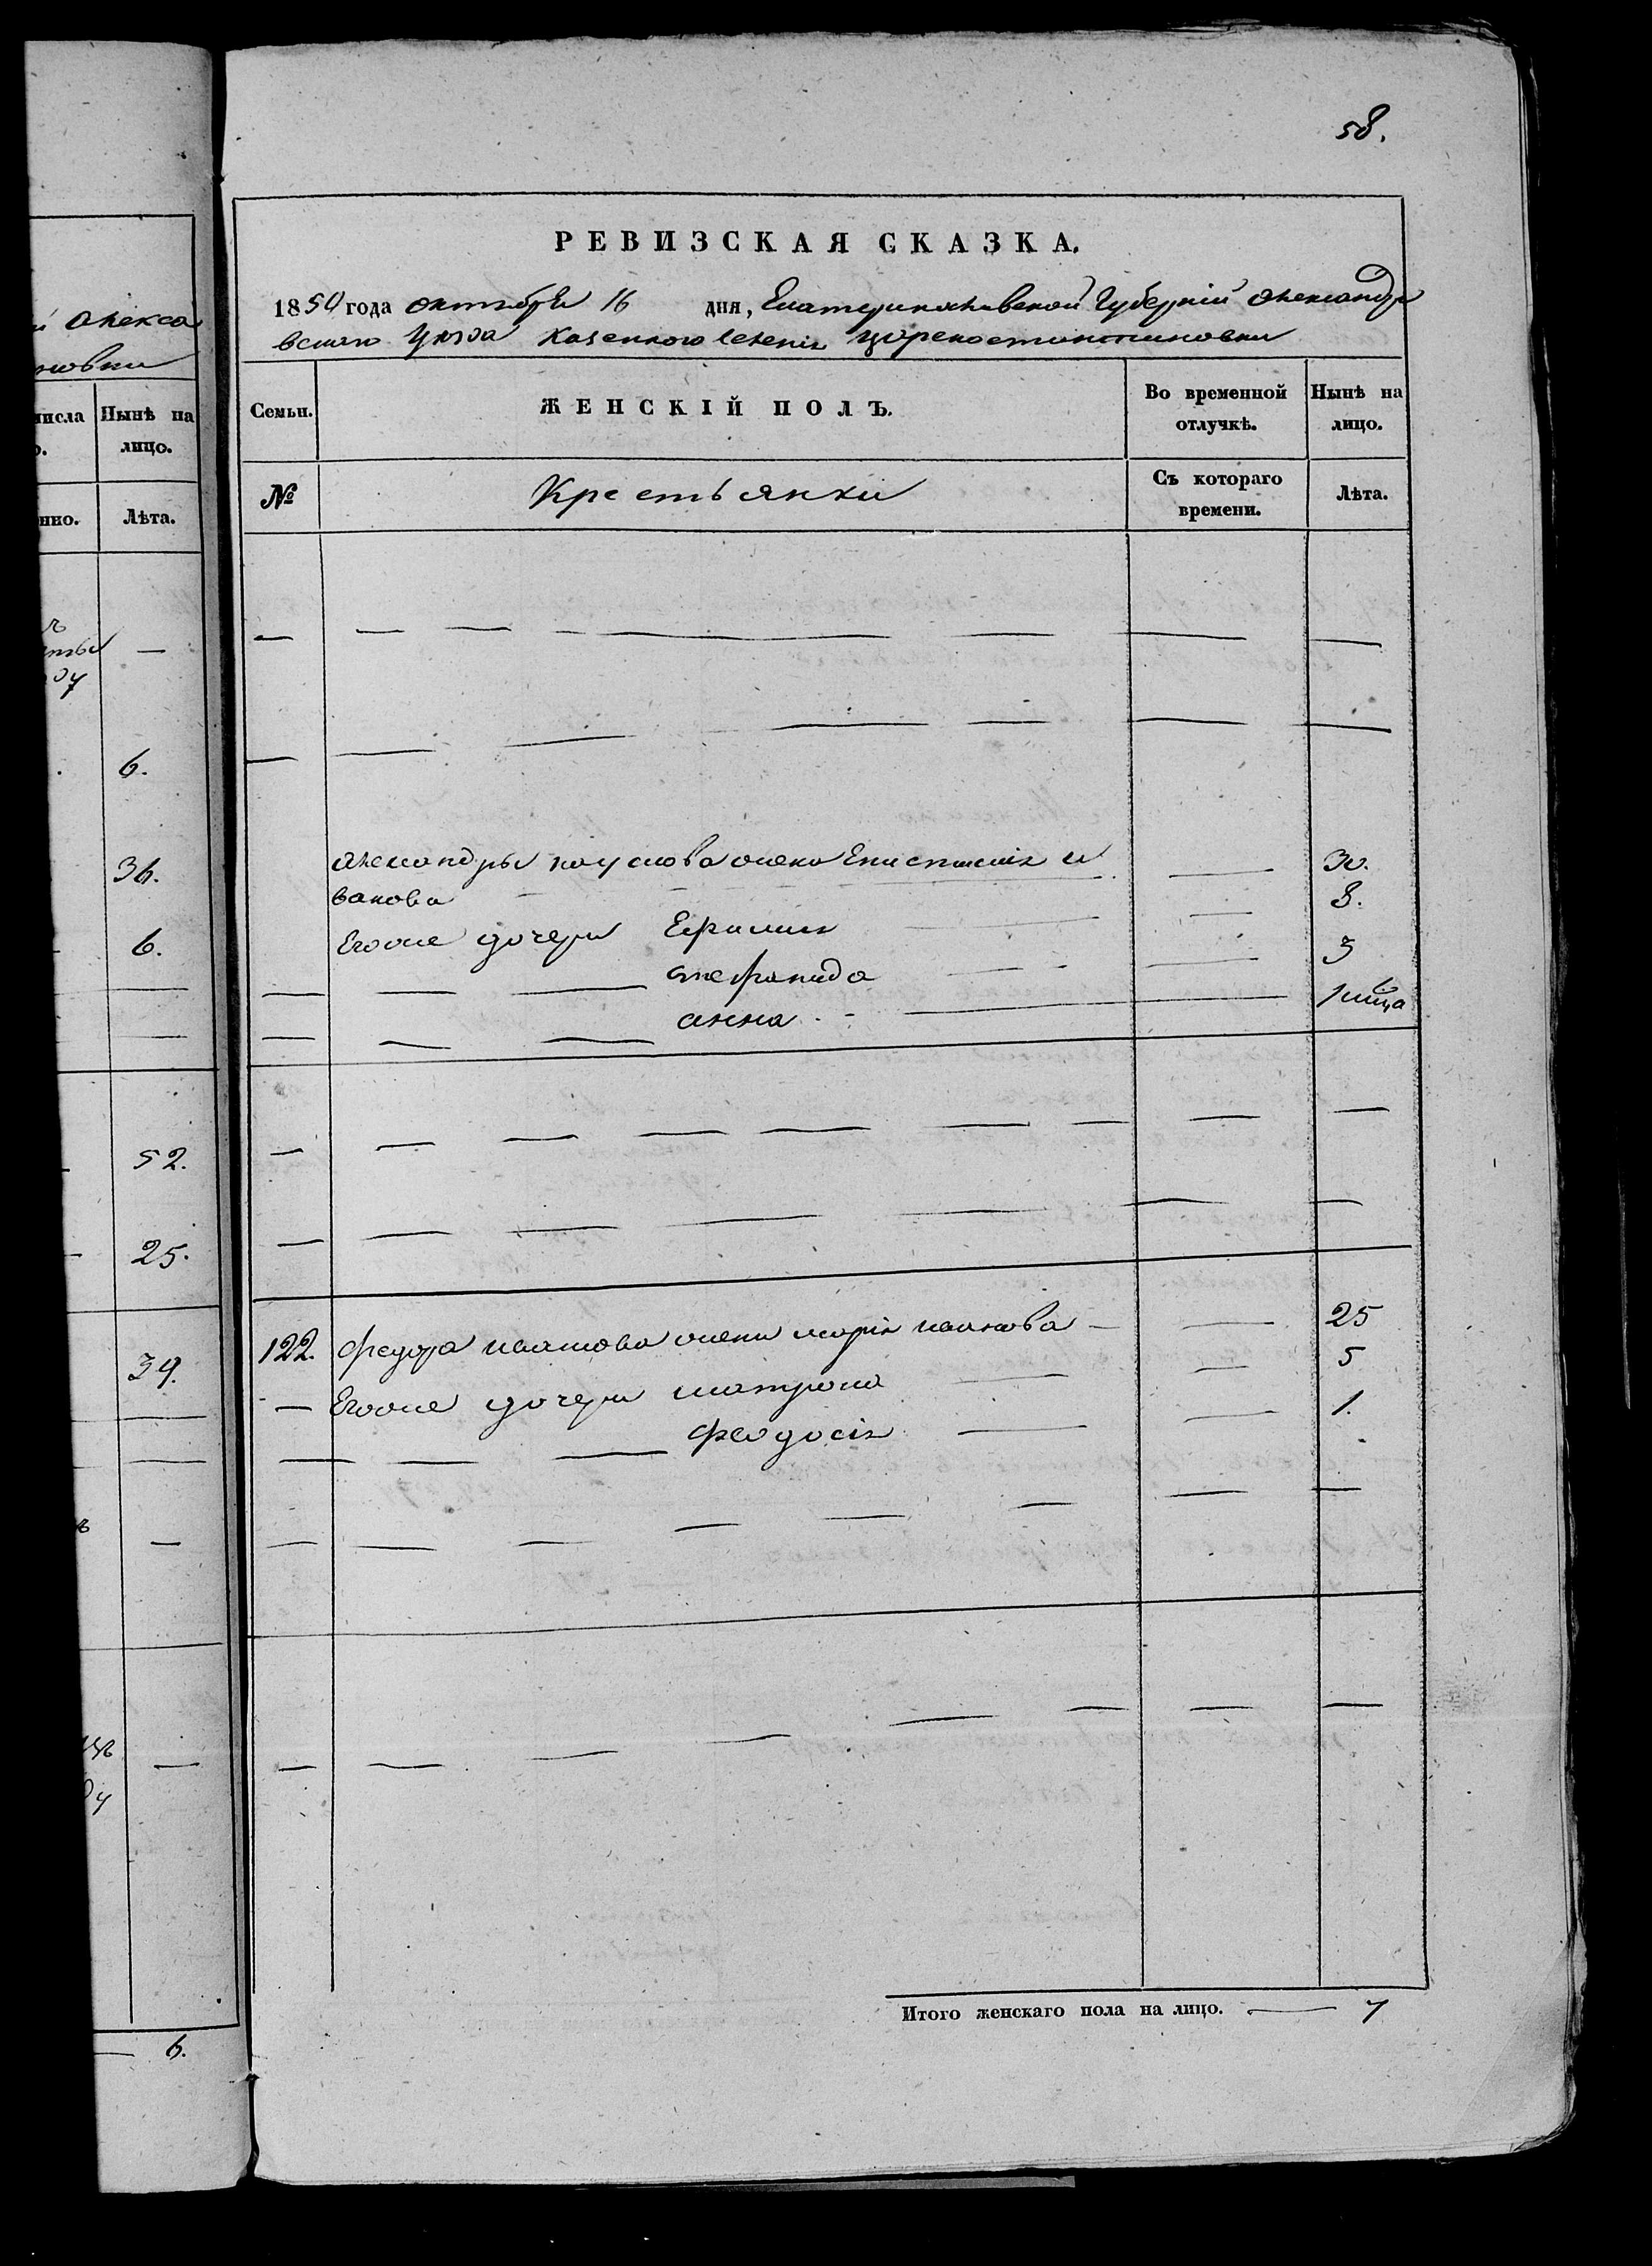 58.
РЕВИЗСКАЯ СКАЗКА.
1850 года октября 16 дня, Екатеринославской Губерніи Александро
вскаго Уезда Казенного селенія Цареконстантиновки
Семьи.
ЖЕНСКІЙ ПОЛЪ.
Во временной отлучкѣ.
Нынѣ на лицо.
№
Крестьянки
Съ котораго времени.
Лѣта.
Александры жена и 30.
ванова 8.
Егоже дочери Ефимия 3
степанида
анна 1 мца
122. Федора жена марія иванова 25
Егоже дочери матрона 5
Феодосія 1.
Итого женскаго пола на лицо. 7
Алекса
новки
числа
Нынѣ на лицо.
нно.
Лѣта.
6.
36.
6.
52.
25.
39.
6.